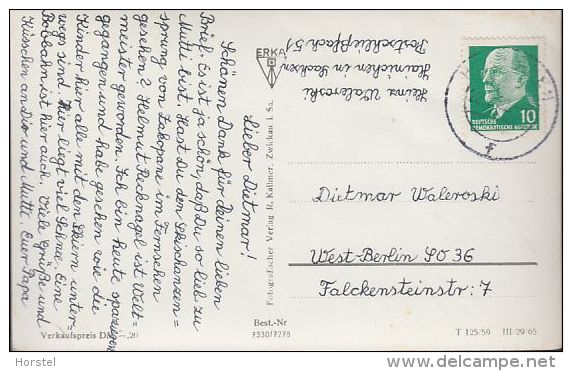 Lieber Dietmar!
Schönen Dank für Deinen lieben
Brief. Es ist ja schön, daß Du so lieb zu
Mutti bist. Hast Du den Skischanzen=
sprung von Zakopane im Fernsehen
gesehen? Helmut Recknagel ist Welt=
meister geworden. Ich bin heute spazieren
gegangen und habe gesehen wie die
Kinder hier alle mit den Skiern unter=
wegs sind. Hier liegt viel Schnee. Eine
Bobbahn ist hier auch. Viele Grüße und
Küsschen an Dir und Mutti Euer Papa
Verkaufspreis DM -,20
ERKA
Fotografischer Verlag R. Kallmer, Zwickau i. Sa.
Best.-Nr
7330/7278
Heinz Waleroski
Hainichen in Sachsen
Postschließfach 51
DEUTSCHE
DEMOKRATISCHE REPUBLIK
10
f
Dietmar Waleroski
West-Berlin SO 36
Falckensteinstr: 7
T 125/59 III/29/65
Horstel
www.delcampe.net